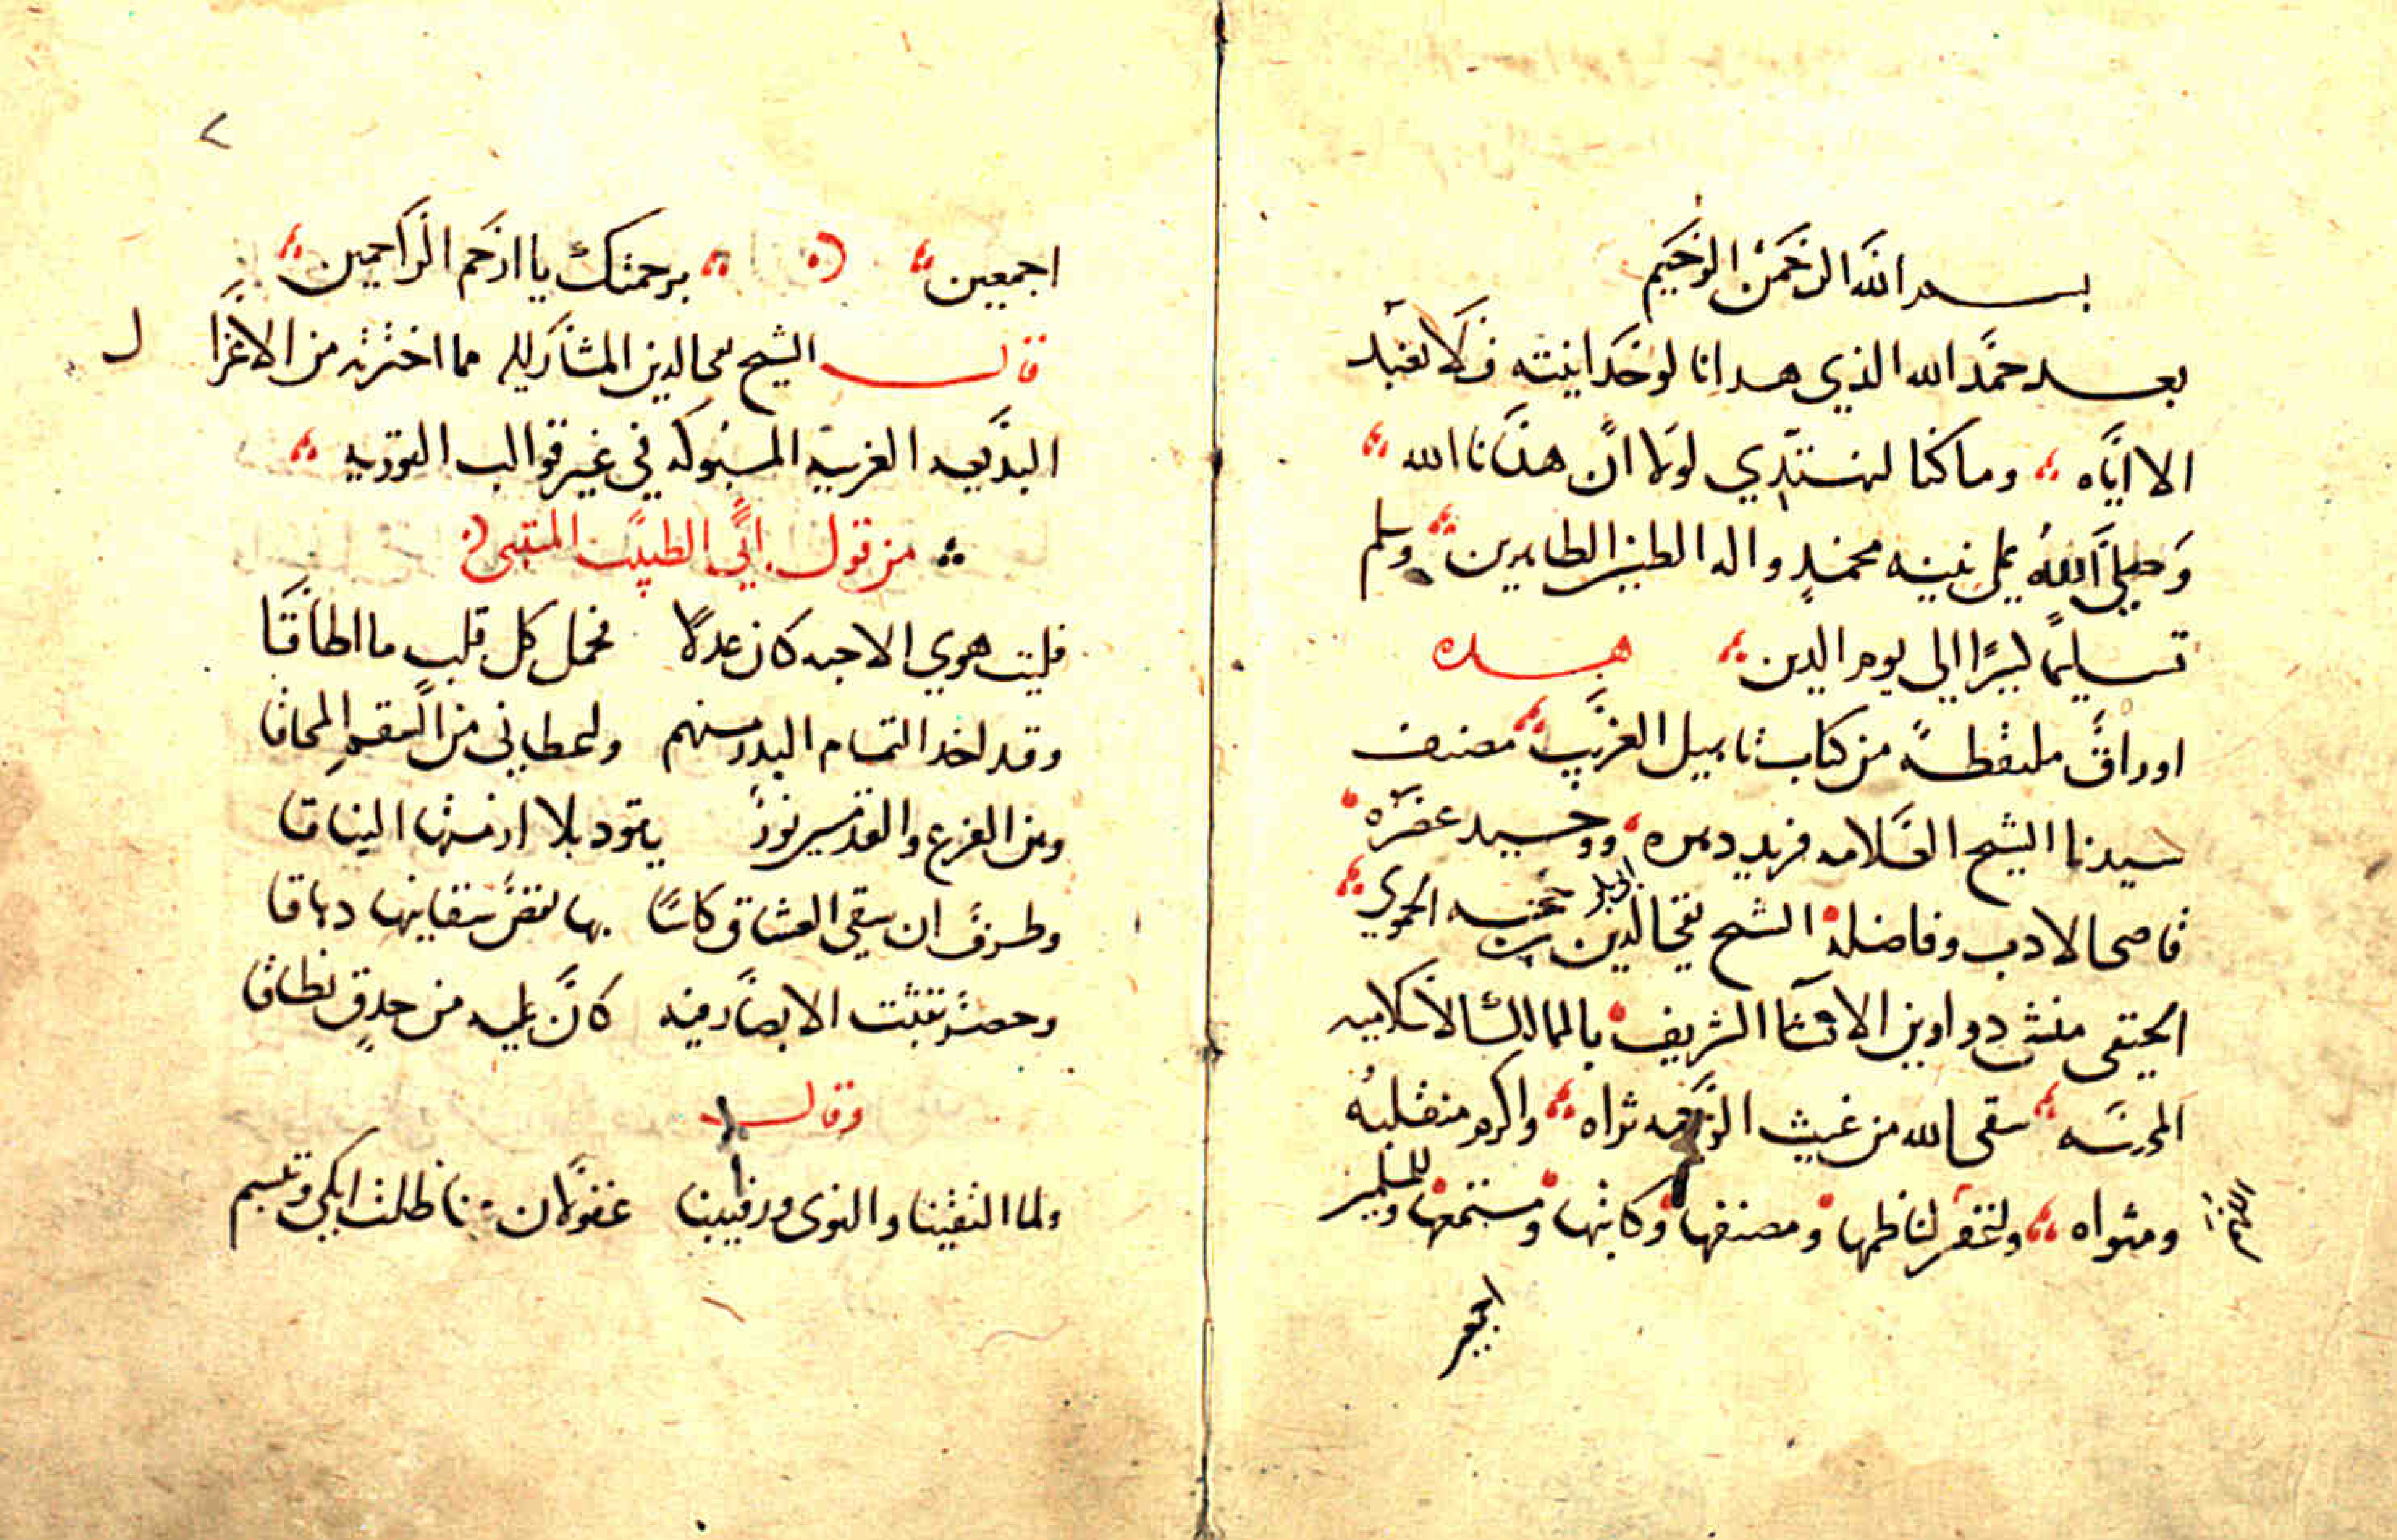 بسم الله الرحمن الرحيم
بعد حمد الله الذي هدانا لوحدانيته فلا نعبد
الا اياه وما كنا لنهتدي لولا ان هدانا الله
وصلى الله على نبيه محمد واله الطيبين الطاهرين وسلم
تسليما كثيرا الى يوم الدين هذه
اوراق ملتقطة من كتاب تاهيل الغريب مصنف
سيدنا الشيخ العلامه فريد دهره ووحيد عصره
قاضي الادب وفاضله الشيخ تقي الدين ابي بكر بن حجه الحموي
الحنفي منشي دواوين الانشا الشريف بالممالك الاسلاميه
المحروسه سقى الله من غيث الرحمه ثراه واكرم منقلبه
ومثواه واغفر لناظمها ومصنفها وكاتبها ومستمعها وللمسلمين
اللهم
اجمعين
٢
اجمعين برحمتك يا ارحم الراحمين
قال الشيخ تقي الدين المشار اليه مما اخترته من الاغزال
البديعه الغريبه المسبوكه في غير قوالب التوريه
من قول ابي الطيب المتنبي
فليت هوي الاحبه كان عدلا فحمل كل قلب ما اطاقا
وقد اخذ التمام البدر منهم واعطاني من السقم المحاقا
وبين الفرع والقدمين نور يقود بلا ازمتها النياقا
وطرف ان سقى العشاق كاسا بها نقص سقانيها دهاقا
وخصر تثبت الابصار فيه كان عليه من حدق نطاقا
وقال
ولما التقينا والنوى ورقيبنا غفولان عنا ظلت ابكي وتبسم